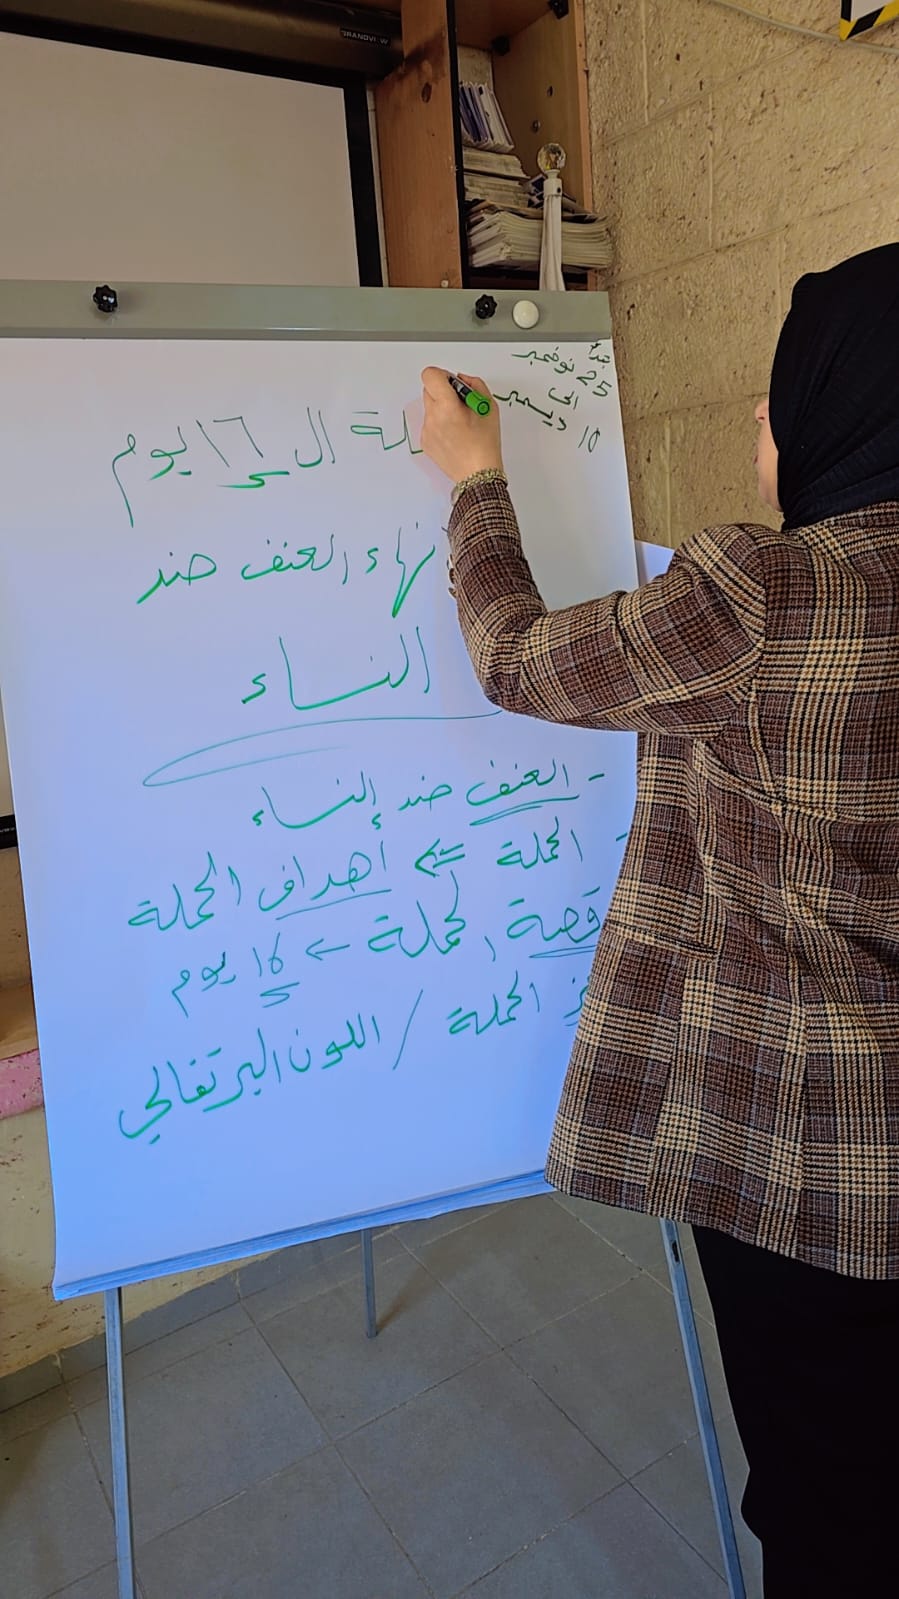 GRANDVIEW
تبدأ
25 نوفمبر
الى
10 ديسمبر
ملة ال 16 يوم
نهاء العنف ضد
النساء
- العنف ضد النساء
- الحملة ⇐ أهداف الحملة
قصة الحملة ← 16 يوم
الحملة / اللون البرتقالي